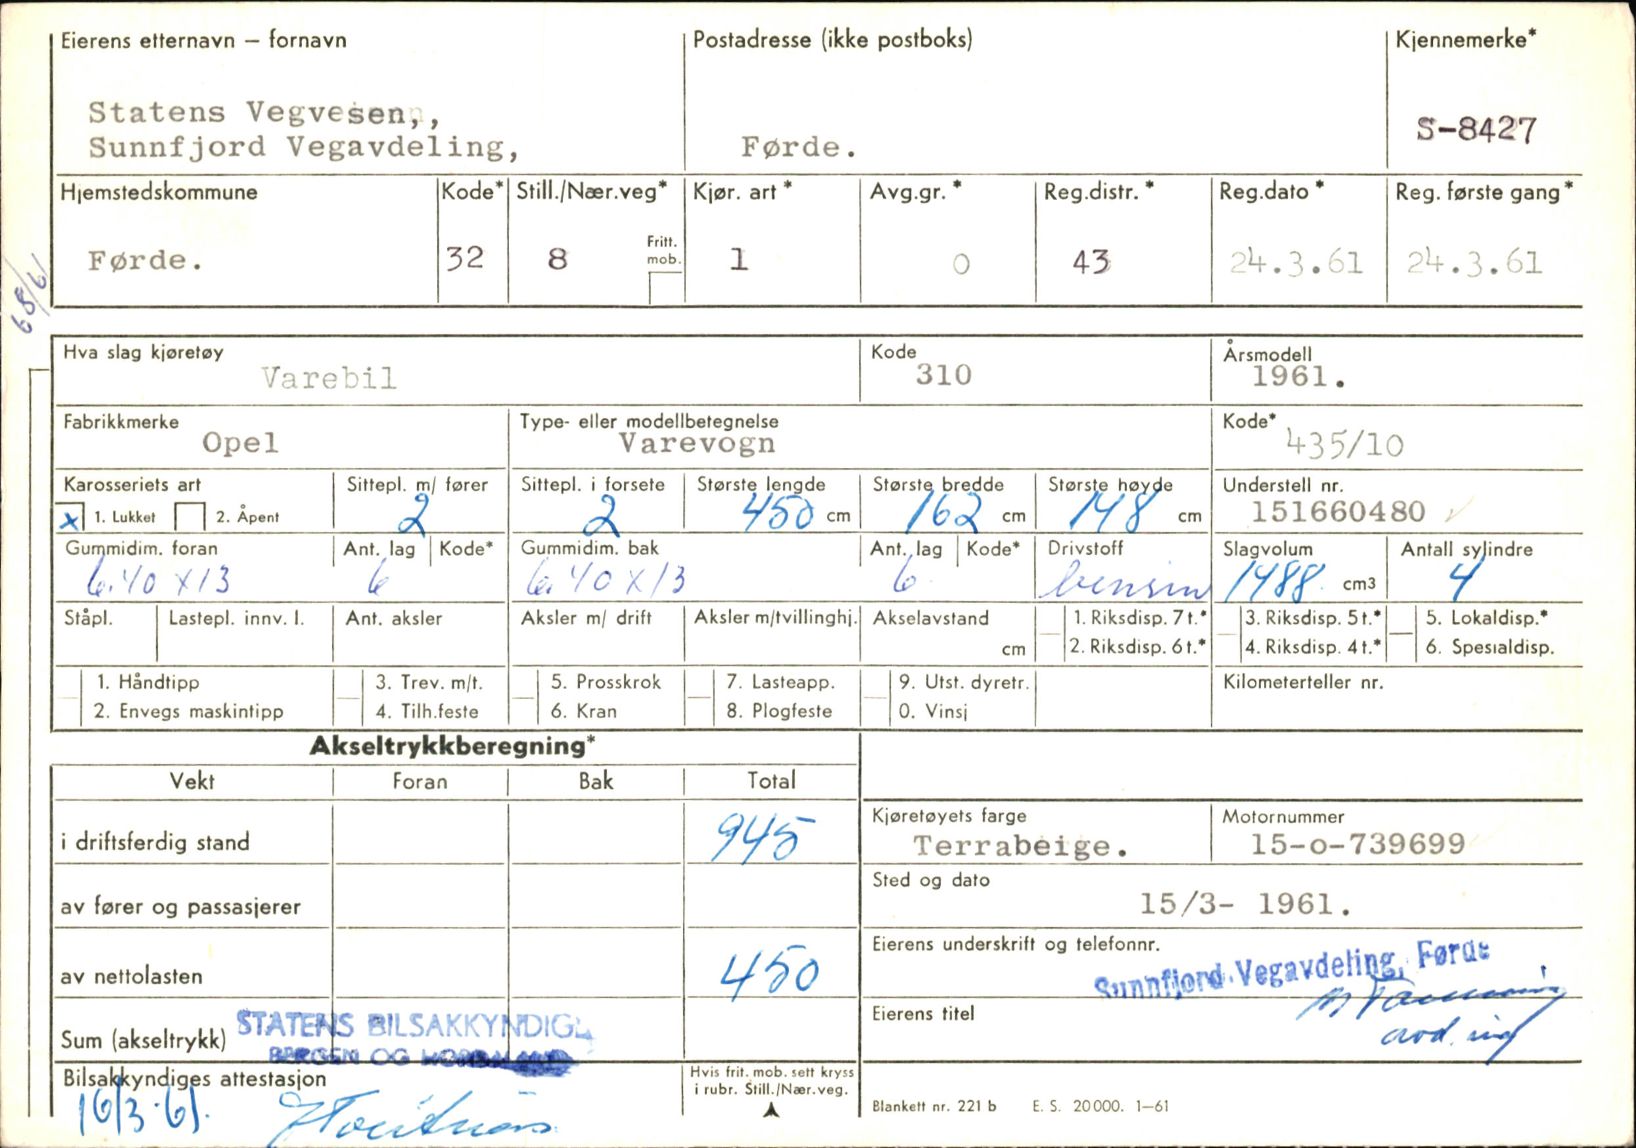 Eierens etternavn – fornavn
Postadresse (ikke postboks)
Kjennemerke*
Statens Vegvesen,,
Sunnfjord Vegavdeling,
Førde.
S-8427
Hjemstedskommune
Kode*
Still./Nær.veg*
Kjør. art *
Avg.gr. *
Reg.distr. *
Reg.dato *
Reg. første gang *
Fritt. mob.
Førde.
32
8
1
0
43
24.3.61
24.3.61
68/61
Hva slag kjøretøy
Varebil
Kode
310
Årsmodell
1961.
Fabrikkmerke
Opel
Type- eller modellbetegnelse
Varevogn
Kode*
435/10
Karosseriets art
x 1. Lukket 2. Åpent
Sittepl. m/ fører
2
Sittepl. i forsete
2
Største lengde
450 cm
Største bredde
162 cm
Største høyde
148 cm
Understell nr.
151660480
Gummidim. foran
6.40 x 13
Ant. lag
6
Kode*
Gummidim. bak
6.40 x 13
Ant. lag
6
Kode*
Drivstoff
bensin
Slagvolum
1488 cm3
Antall sylindre
4
Ståpl.
Lastepl. innv. l.
Ant. aksler
Aksler m/ drift
Aksler m/tvillinghj.
Akselavstand
cm
1. Riksdisp. 7 t.*
2. Riksdisp. 6 t.*
3. Riksdisp. 5 t.*
4. Riksdisp. 4 t.*
5. Lokaldisp.*
6. Spesialdisp.
1. Håndtipp
2. Envegs maskintipp
3. Trev. m/t.
4. Tilh.feste
5. Prosskrok
6. Kran
7. Lasteapp.
8. Plogfeste
9. Utst. dyretr.
0. Vinsj
Kilometerteller nr.
Akseltrykkberegning*
Vekt
Foran
Bak
Total
i driftsferdig stand
945
av fører og passasjerer
av nettolasten
450
Sum (akseltrykk)
STATENS BILSAKKYNDIGE
BERGEN OG HORDALAND
Bilsakkyndiges attestasjon
16/3-61.
Hvis frit. mob. sett kryss
i rubr. Still./Nær.veg.
Kjøretøyets farge
Terrabeige.
Motornummer
15-o-739699
Sted og dato
15/3- 1961.
Eierens underskrift og telefonnr.
Sunnfjord Vegavdeling, Førde
Eierens titel
avd. ing
Blankett nr. 221 b E. S. 20000. 1–61